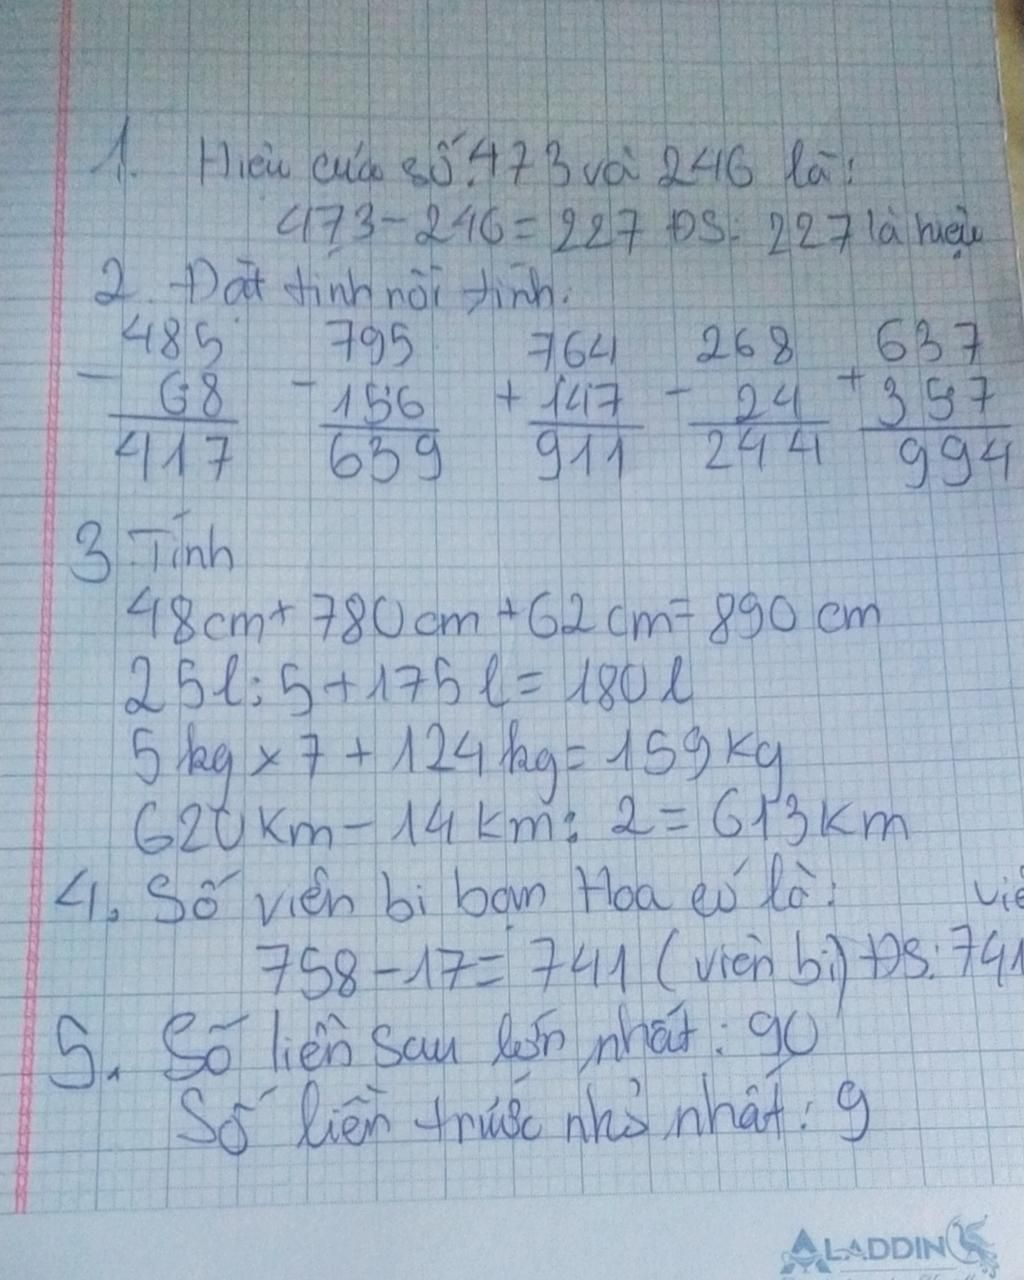 1. Hiệu của số 473 và 246 là:
473 - 246 = 227 ĐS: 227 là hiệu
2. Đặt tính rồi tính.
485 795 764 268 637
- 68 - 156 + 147 - 24 + 357
417 639 911 244 994
3 Tính
48cm + 780cm + 62cm = 890cm
25l : 5 + 175l = 180l
5kg x 7 + 124kg = 159kg
620km - 14km : 2 = 613km
4. Số viên bi bạn Hoa có là:
758 - 17 = 741 (viên bi) ĐS: 741
5. Số liền sau lớn nhất: 90
Số liền trước nhỏ nhất: 9
ALADDIN